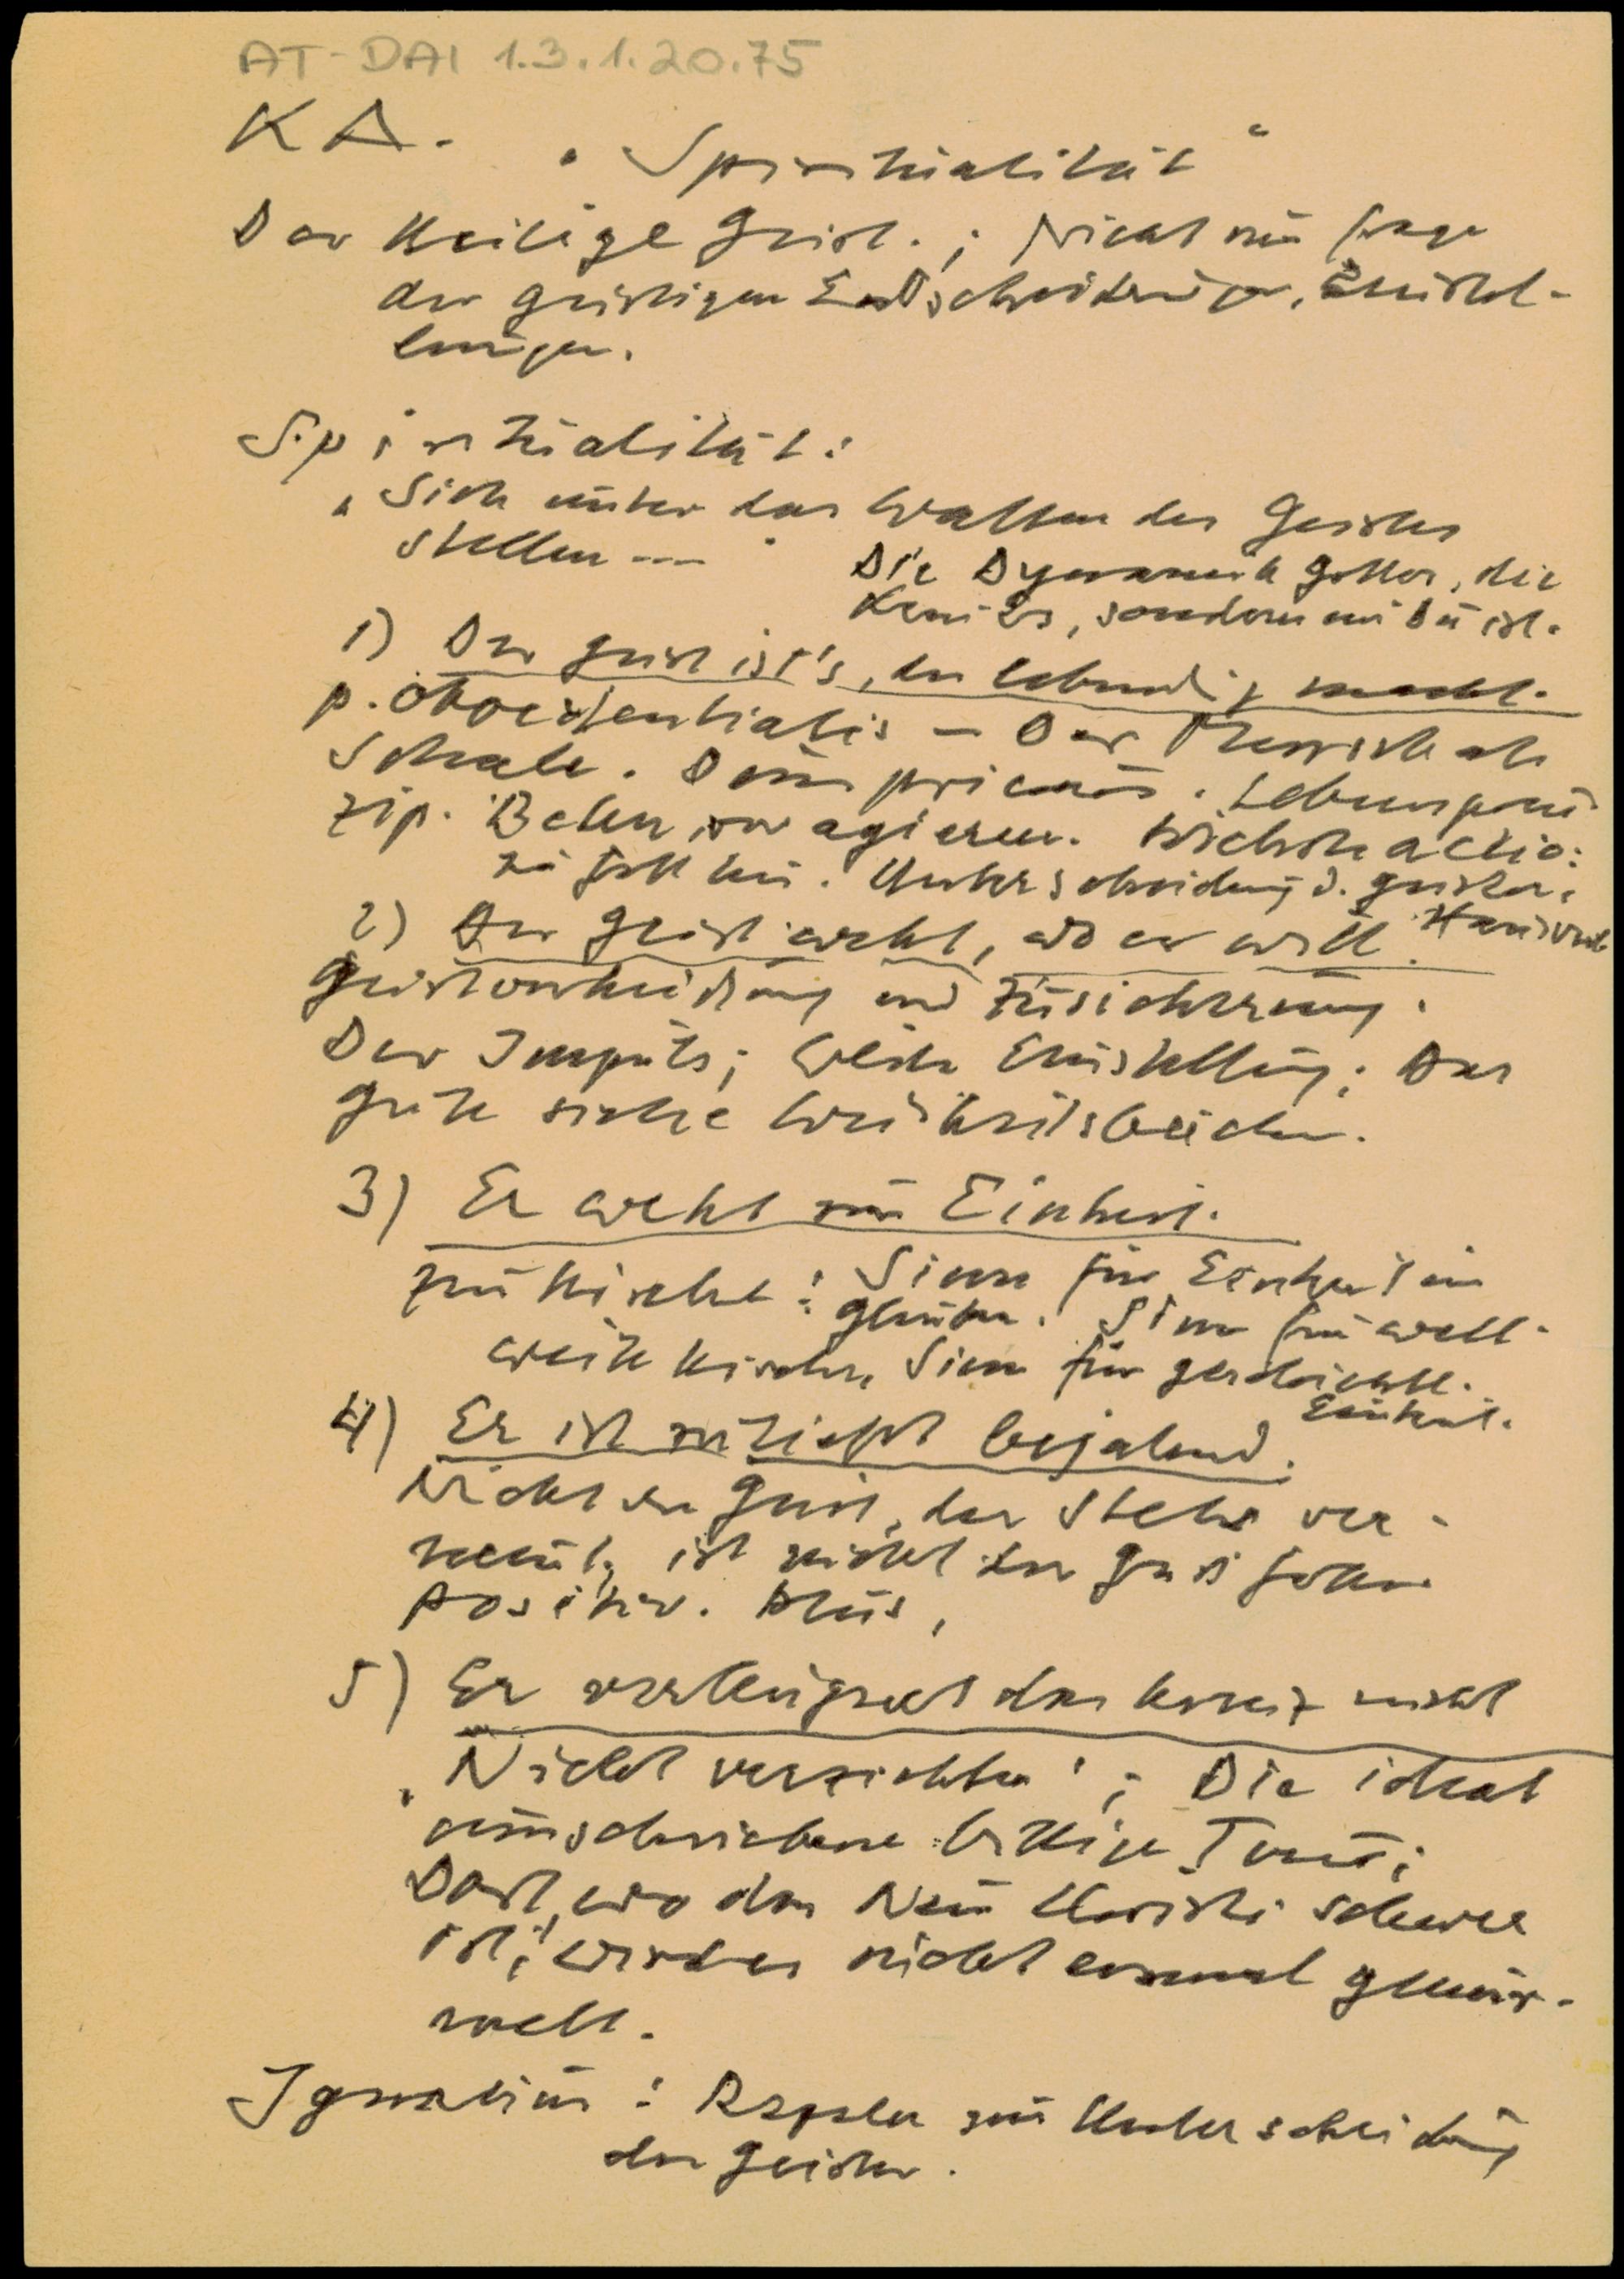 AT-DAI 1.3.1.20.75
KA.
„Spiritualität“
Der Heilige Geist.; Nicht nur Frage
der geistigen Entscheidungen, Einstel-
lungen.
Spiritualität:
„Sich unter das Walten des Geistes
stellen ---“
Die Dynamik Gottes, die
kein Es, sondern ein Du ist.
1) Der Geist ist's, der lebendig macht.
p. oboedientialis – Der Mensch als
Schale. Donum primum. Lebensprin-
zip. Beten vor agieren. Wichtigste actio:
zu Gott hin. Unterscheidung d. Geister.
2) Der Geist weht, wo er will.
Geistverheißung und Zusicherung.
Der Impuls; Weite Einstellung; Das
Gute siehe Weisheitsbücher.
3) Er weht zur Einheit.
Zur Kirche: Sinn für Einheit im
Glauben. Sinn für welt-
weite Kirche, Sinn für geschichtl.
Einheit.
4) Er ist zutiefst bejahend.
Nicht der Geist, der stets ver-
neint, ist nicht der Geist Gottes.
Positiv. Plus,
5) Er verleugnet das Kreuz nicht
„Nicht verzichten“; Die ideal
umschriebene billige Tour;
Dort, wo das Nein Christi schwer
ist, wird es nicht einmal gemur-
melt.
Ignatius: Regeln zur Unterscheidung
der Geister.